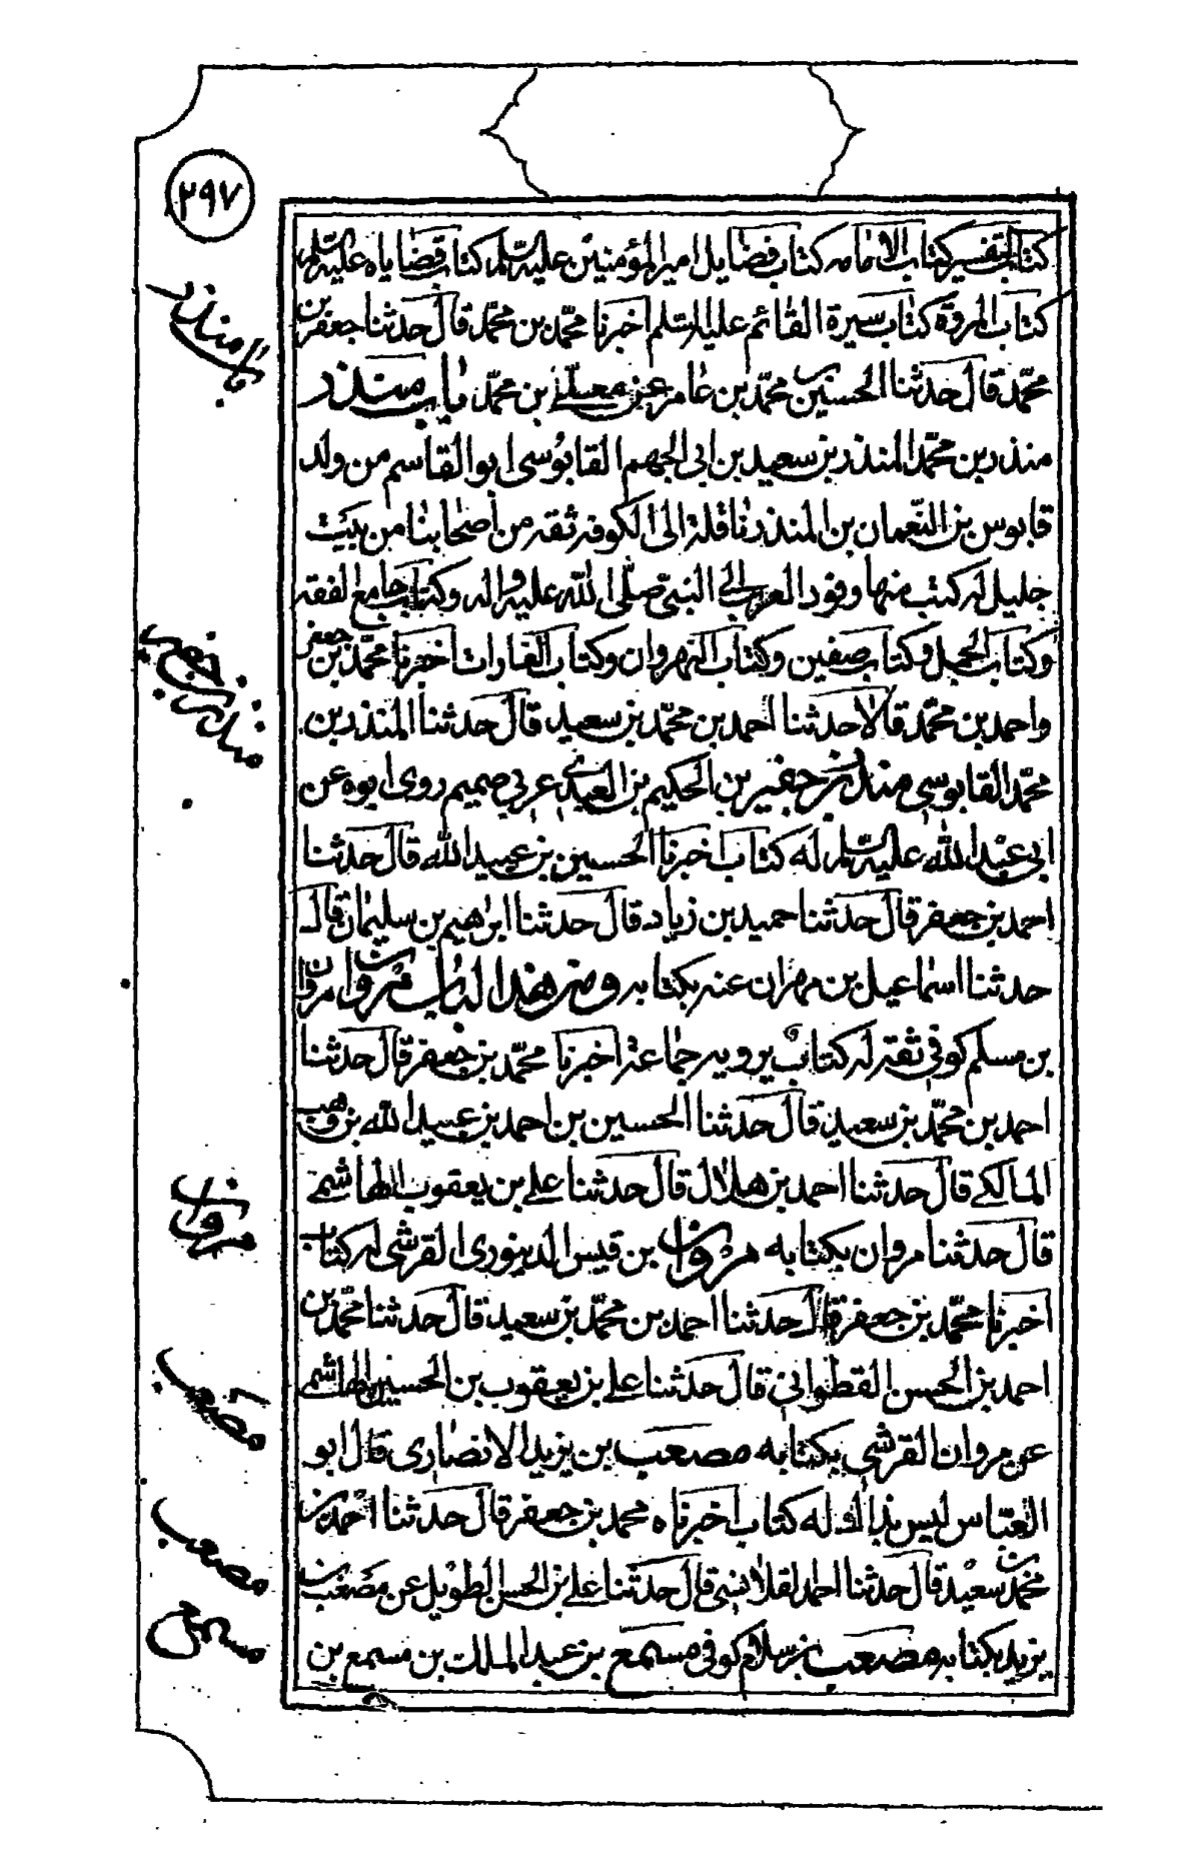 ٢٩٧
كتاب التفسير كتاب الامامه كتاب فضايل امير المؤمنين عليه السّلم كتاب قضاياه عليه السّلم
كتاب المروة كتاب سيرة القائم عليه السّلم اخبرنا محمّد بن محمّد قال حدثنا جعفر بن
محمّد قال حدثنا الحسين بن محمّد بن عامر عن معلّى بن محمّد باب منذر
منذر بن محمّد المنذر بن سعيد بن ابى الجهم القابوسى ابو القاسم من ولد
قابوس بن النّعمان بن المنذر ناقلة الى الكوفه ثقه من أصحابنا من بيت
جليل له كتب منها وفود العرب الى النبىّ صلّى الله عليه واله وكتاب جامع الفقه
وكتاب الجمل وكتاب صفين وكتاب النهروان وكتاب الغارات اخبرنا محمّد بن جعفر
واحمد بن محمّد قالا حدثنا احمد بن محمّد بن سعيد قال حدثنا المنذر بن
محمّد القابوسى منذر بن جفير بن الحكيم بن العبدى عربى صميم روى ابوه عن
ابى عبد الله عليه السّلم له كتاب اخبرنا الحسين بن عبيد الله قال حدثنا
احمد بن جعفر قال حدثنا حميد بن زياد قال حدثنا ابرهيم بن سليمان قال
حدثنا اسماعيل بن مهران عنه بكتابه ومن هذا الباب مروان مروان
بن مسلم كوفى ثقه له كتاب يرويه جماعة اخبرنا محمّد بن جعفر قال حدثنا
احمد بن محمّد بن سعيد قال حدثنا الحسين بن احمد بن عبيد الله بن وهب
المالكى قال حدثنا احمد بن هلال قال حدثنا على بن يعقوب الهاشمى
قال حدثنا مروان بكتابه مروان بن قيس الدينورى القرشى له كتاب
اخبرنا محمّد بن جعفر قال حدثنا احمد بن محمّد بن سعيد قال حدثنا محمّد بن
احمد بن الحسن القطوانى قال حدثنا على بن يعقوب بن الحسين الهاشمى
عن مروان القرشى بكتابه مصعب بن يزيد الانصارى قال ابو
العبّاس ليس بذاك له كتاب اخبرناه محمد بن جعفر قال حدثنا احمد بن
محمد بن سعيد قال حدثنا احمد القلانسى قال حدثنا على بن الحسن الطويل عن مصعب بن
يزيد بكتابه مصعب بن سلام كوفى مسمع بن عبد الملك بن مسمع بن
باب منذر
منذر بن جفير
مروان
مصعب
مصعب
مسمع